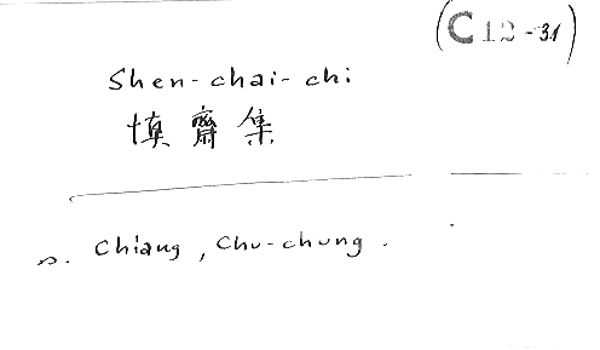 (C 12-31)
Shen-chai-chi
慎齋集
n. Chiang, Chu-chung.